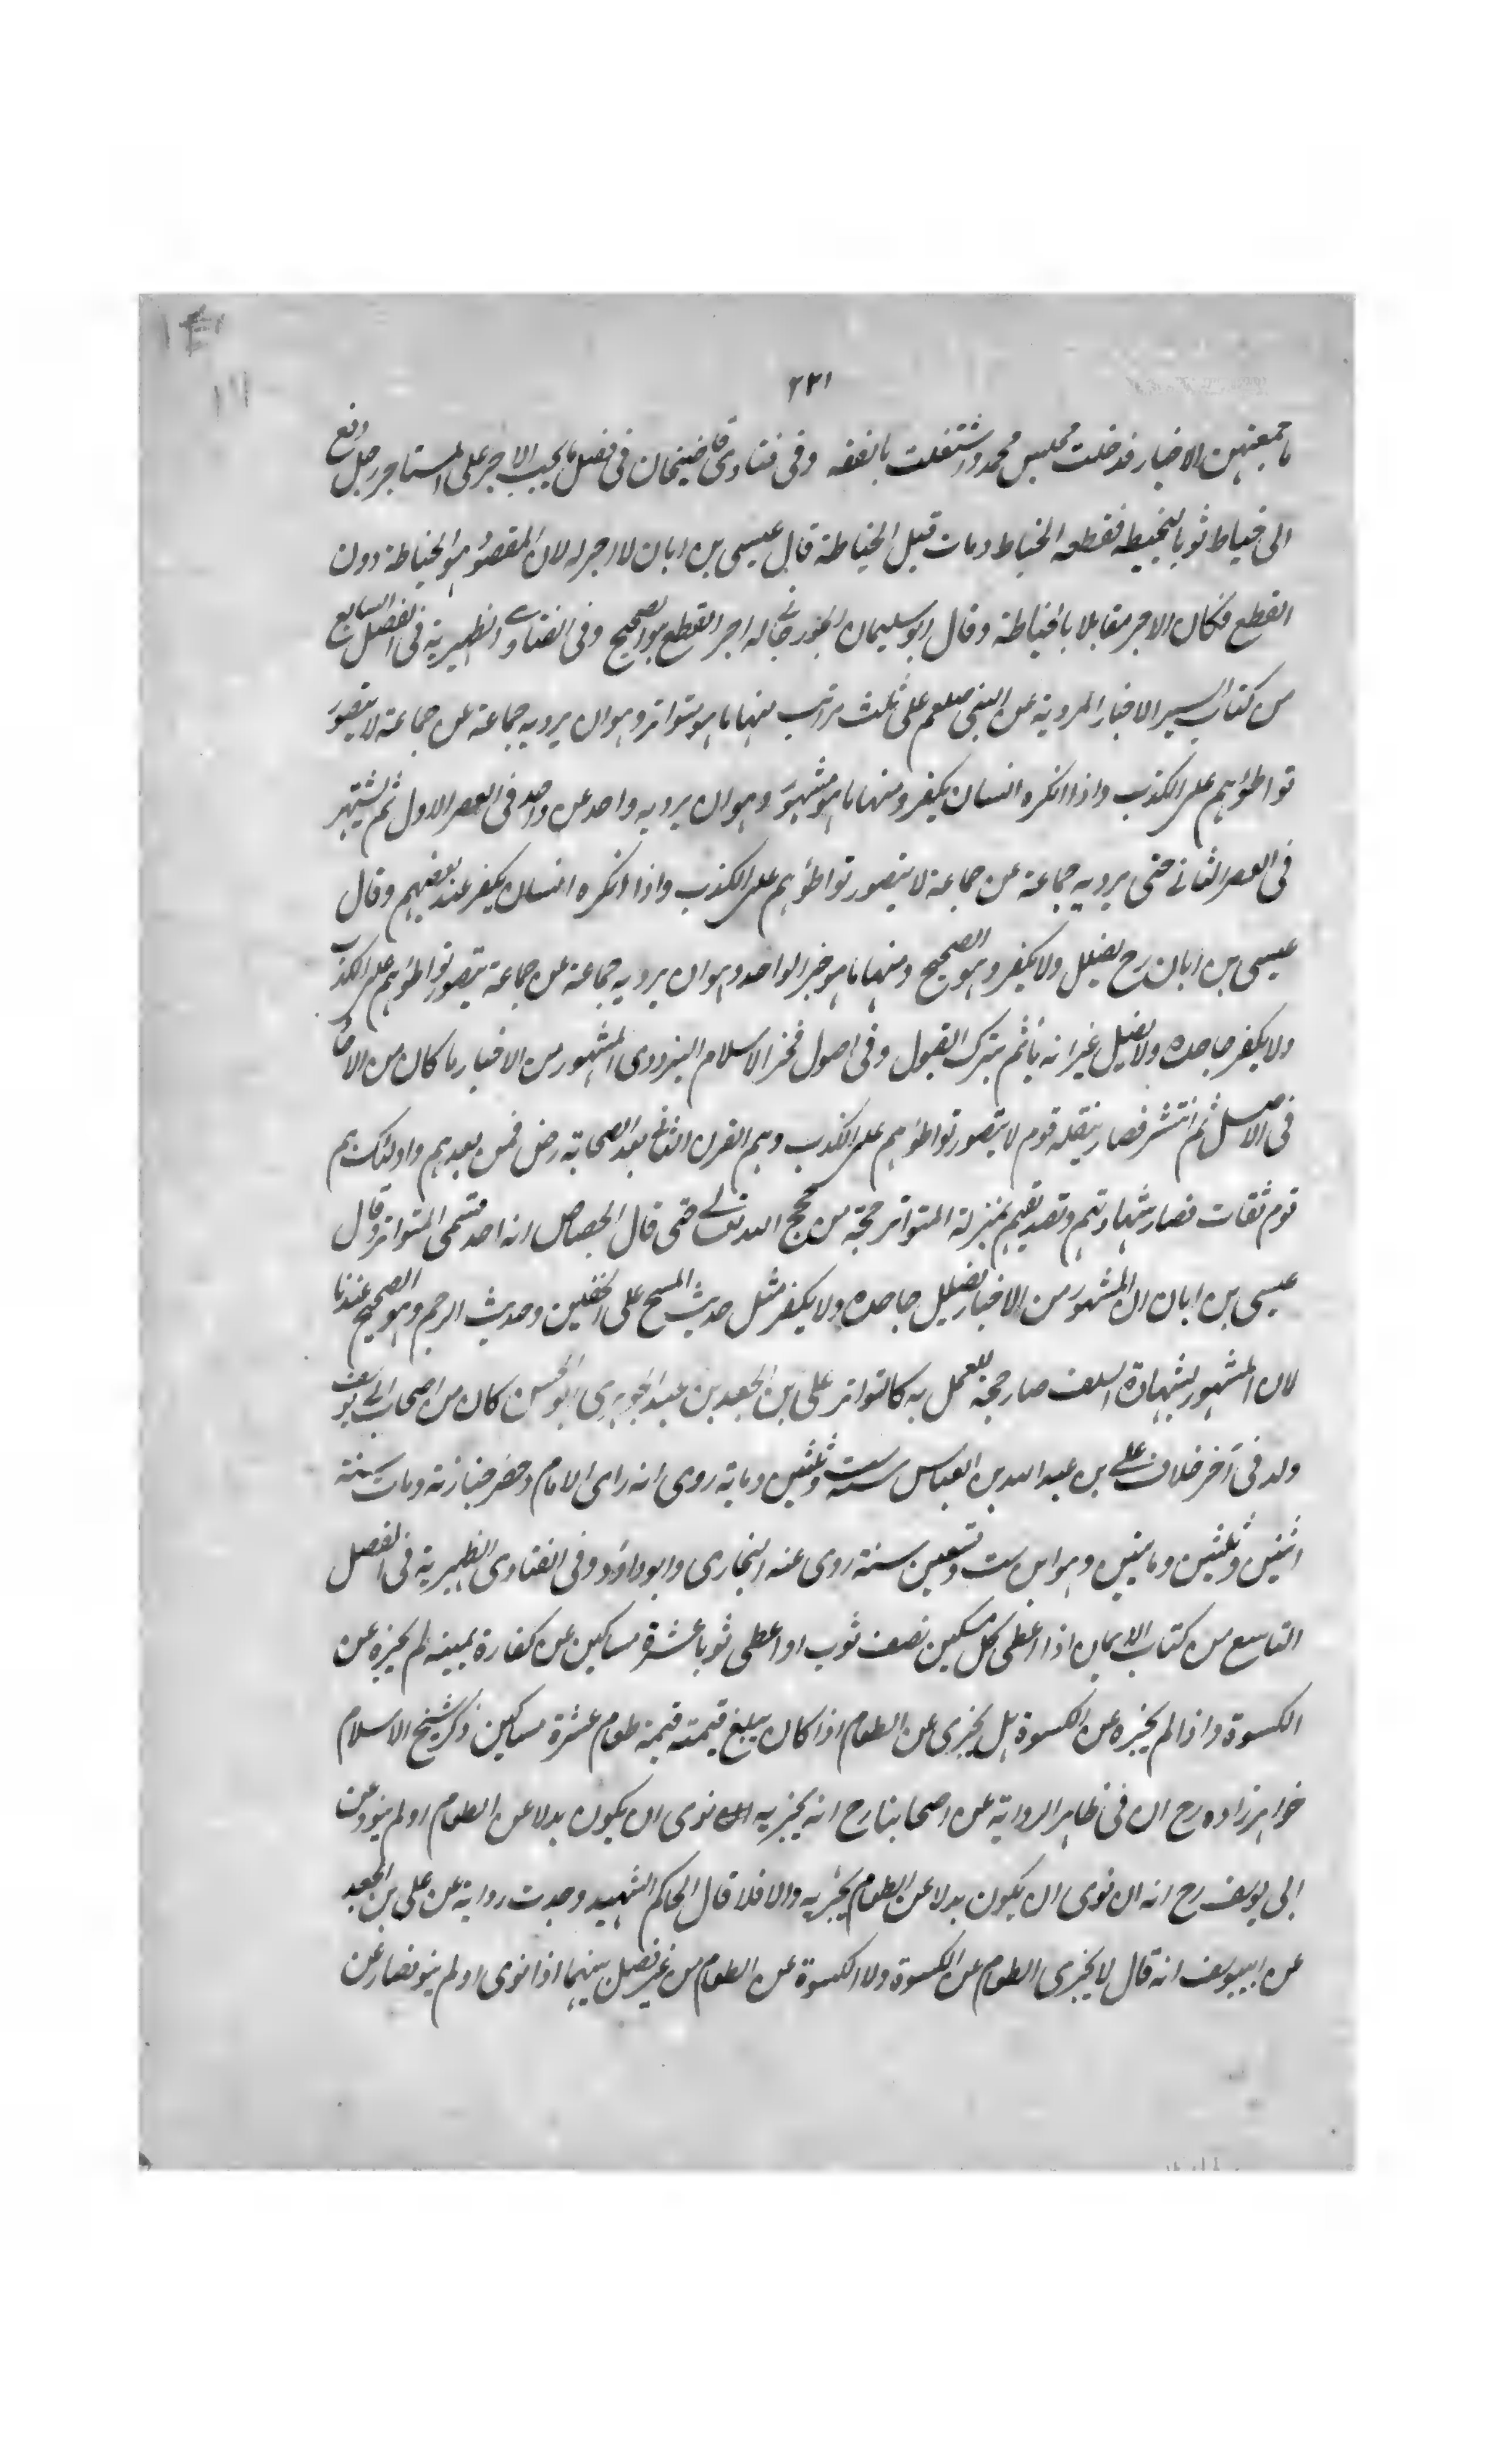 ٢٣١
ما جمعتهن الاخبار فدخلت مجلس محمد واشتغلت بالفقه وفى فتاوى قاضيخان فى فصل ما يجب الاجر على المستاجر رجل دفع
الى خياط ثوبا ليخيطه فقطعه الخياط ومات قبل الخياطة قال عيسى بن ابان لا اجر له لان المقصود هو الخياطة دون
القطع فكان الاجر مقابلا بالخياطة وقال ابو سليمان الجوزجانى له اجر القطع هو الصحيح وفى الفتاوى الظهيرية فى الفصل السابع
من كتاب السير الاخبار المروية عن النبى صلعم على ثلث مراتب منها ما هو متواتر وهو ان يرويه جماعة عن جماعة لا يتصور
تواطؤهم على الكذب واذا انكره انسان يكفر ومنها ما هو مشهور وهو ان يرويه واحد عن واحد فى العصر الاول ثم يشتهر
فى العصر الثانى حتى يرويه جماعة عن جماعة لا يتصور تواطؤهم على الكذب واذا انكره انسان يكفر عند بعضهم وقال
عيسى بن ابان رح يضلل ولا يكفر وهو الصحيح ومنها ما هو خبر الواحد وهو ان يرويه جماعة عن جماعة يتصور تواطؤهم على الكذب
ولا يكفر جاحده ولا يضلل غير انه يأثم بترك القبول وفى اصول فخر الاسلام البزدوى المشهور من الاخبار ما كان من الاحاد
فى الاصل ثم انتشر فصار ينقله قوم لا يتصور تواطؤهم على الكذب وهم القرن الثانى بعد الصحابة رض فمن بعدهم واولئك هم
قوم ثقات فصار شهادتهم وتصديقهم بمنزلة المتواتر حجة من حجج الله تعالى حتى قال الجصاص انه احد قسمى المتواتر وقال
عيسى بن ابان ان المشهور من الاخبار يضلل جاحده ولا يكفر مثل حديث المسح على الخفين وحديث الرجم وهو الصحيح عندنا
لان المشهور بشهادة السلف صار حجة للعمل به كالمتواتر على بن الجعد بن عبد الجوهرى ابو الحسن كان من اصحاب ابى يوسف
ولد فى آخر خلافة على بن عبد الله بن العباس سنة ست وثلثين وماية روى انه راى الامام وحضر جنازته ومات سنة
اثنين وثلثين ومايتين وهو ابن ست وتسعين سنة روى عنه البخارى وابو داود وفى الفتاوى الظهيرية فى الفصل
التاسع من كتاب الايمان اذا اعطى كل مسكين نصف ثوب او اعطى ثوبا عشرة مساكين عن كفارة يمينه لم يجزه عن
الكسوة واذا لم يجزه عن الكسوة هل يجزى عن الطعام اذا كان يبلغ قيمته قيمة طعام عشرة مساكين ذكر شيخ الاسلام
خواهرزاده رح ان فى ظاهر الرواية عن اصحابنا رح انه يجزيه نوى ان يكون بدلا عن الطعام او لم ينو وعن
ابى يوسف رح انه ان نوى ان يكون بدلا عن الطعام يجزيه والا فلا قال الحاكم الشهيد وجدت رواية عن على بن الجعد
عن ابيوسف انه قال لا يجزى الطعام عن الكسوة ولا الكسوة عن الطعام من غير فصل بينهما اذا نوى او لم ينو فصار عن